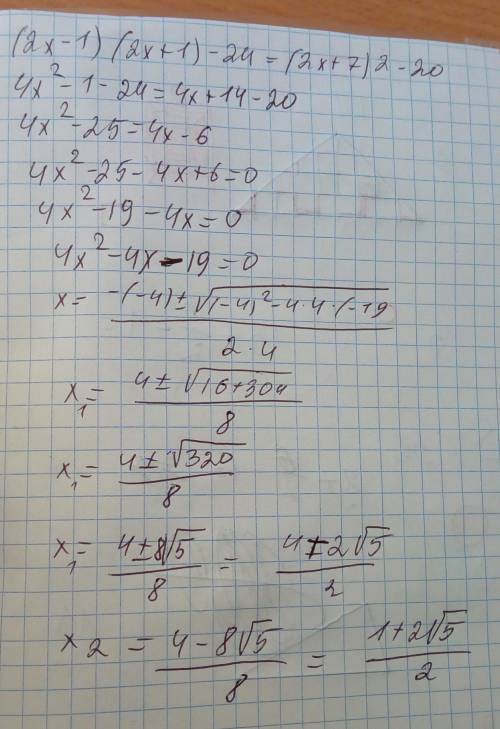 (2x-1)(2x+1)-24=(2x+7)2-20
4x²-1-24=4x+14-20
4x²-25=4x-6
4x²-25-4x+6=0
4x²-19-4x=0
4x²-4x-19=0
x= (-(-4)±√((-4)²-4·4·(-19)/(2·4)
x₁= (4±√(16+304))/8
x₁= (4±√320)/8
x₁= (4±8√5)/8 = (4±2√5)/2
x₂ = (4-8√5)/8 = (1+2√5)/2